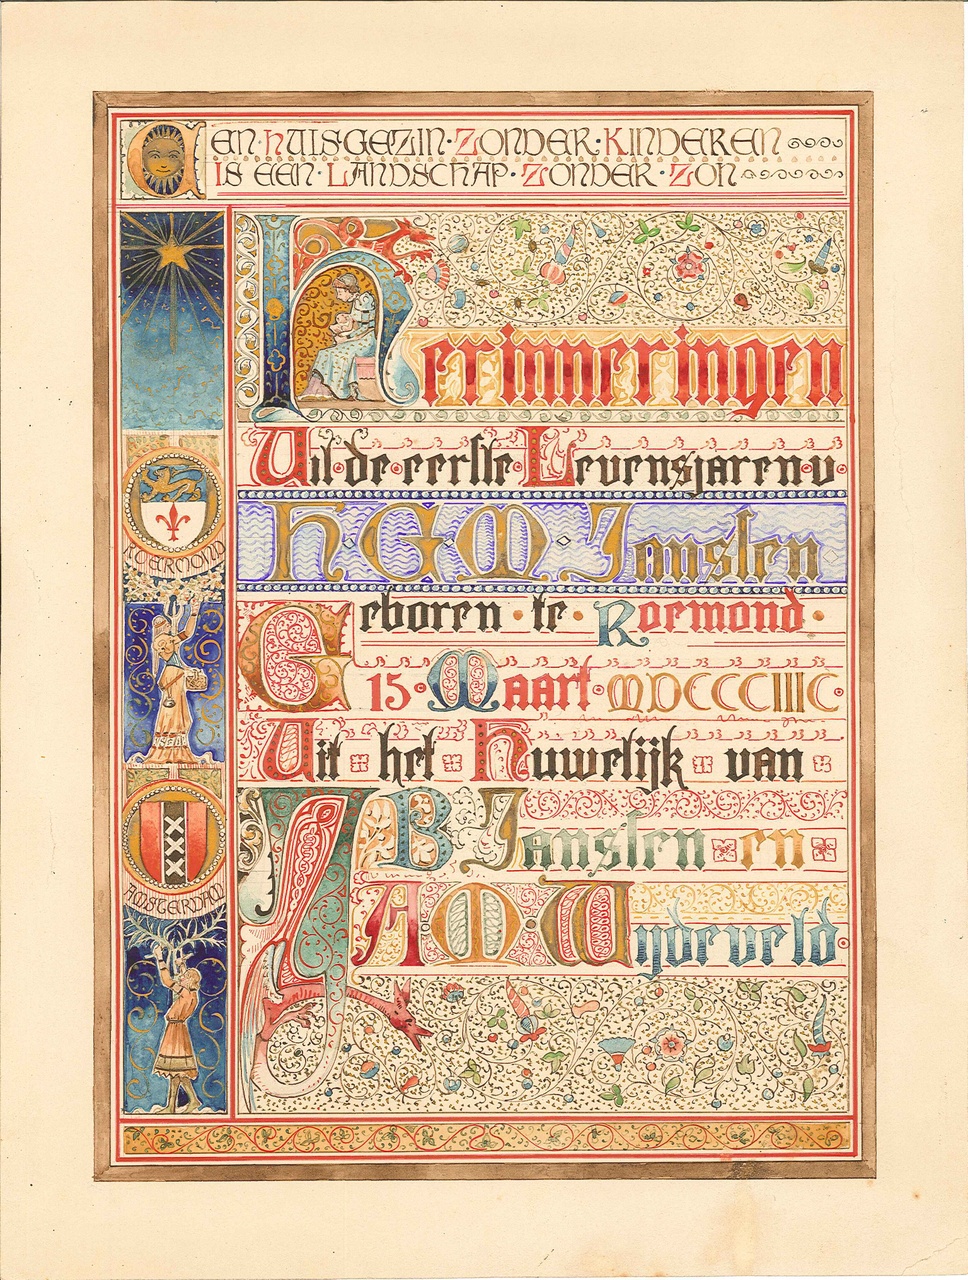 EEN·HUISGEZIN·ZONDER·KINDEREN
IS EEN·LANDSCHAP·ZONDER·ZON
Herinneringen
Uit·de·eerste·Levensjaren·v·
H·G·M·Janssen
Geboren·te·Roemond·
15·Maart·MDCCCIIIC
Uit het Huwelijk van
A B Janssen en
A M Wijdeveld
ROERMOND
AMSTERDAM